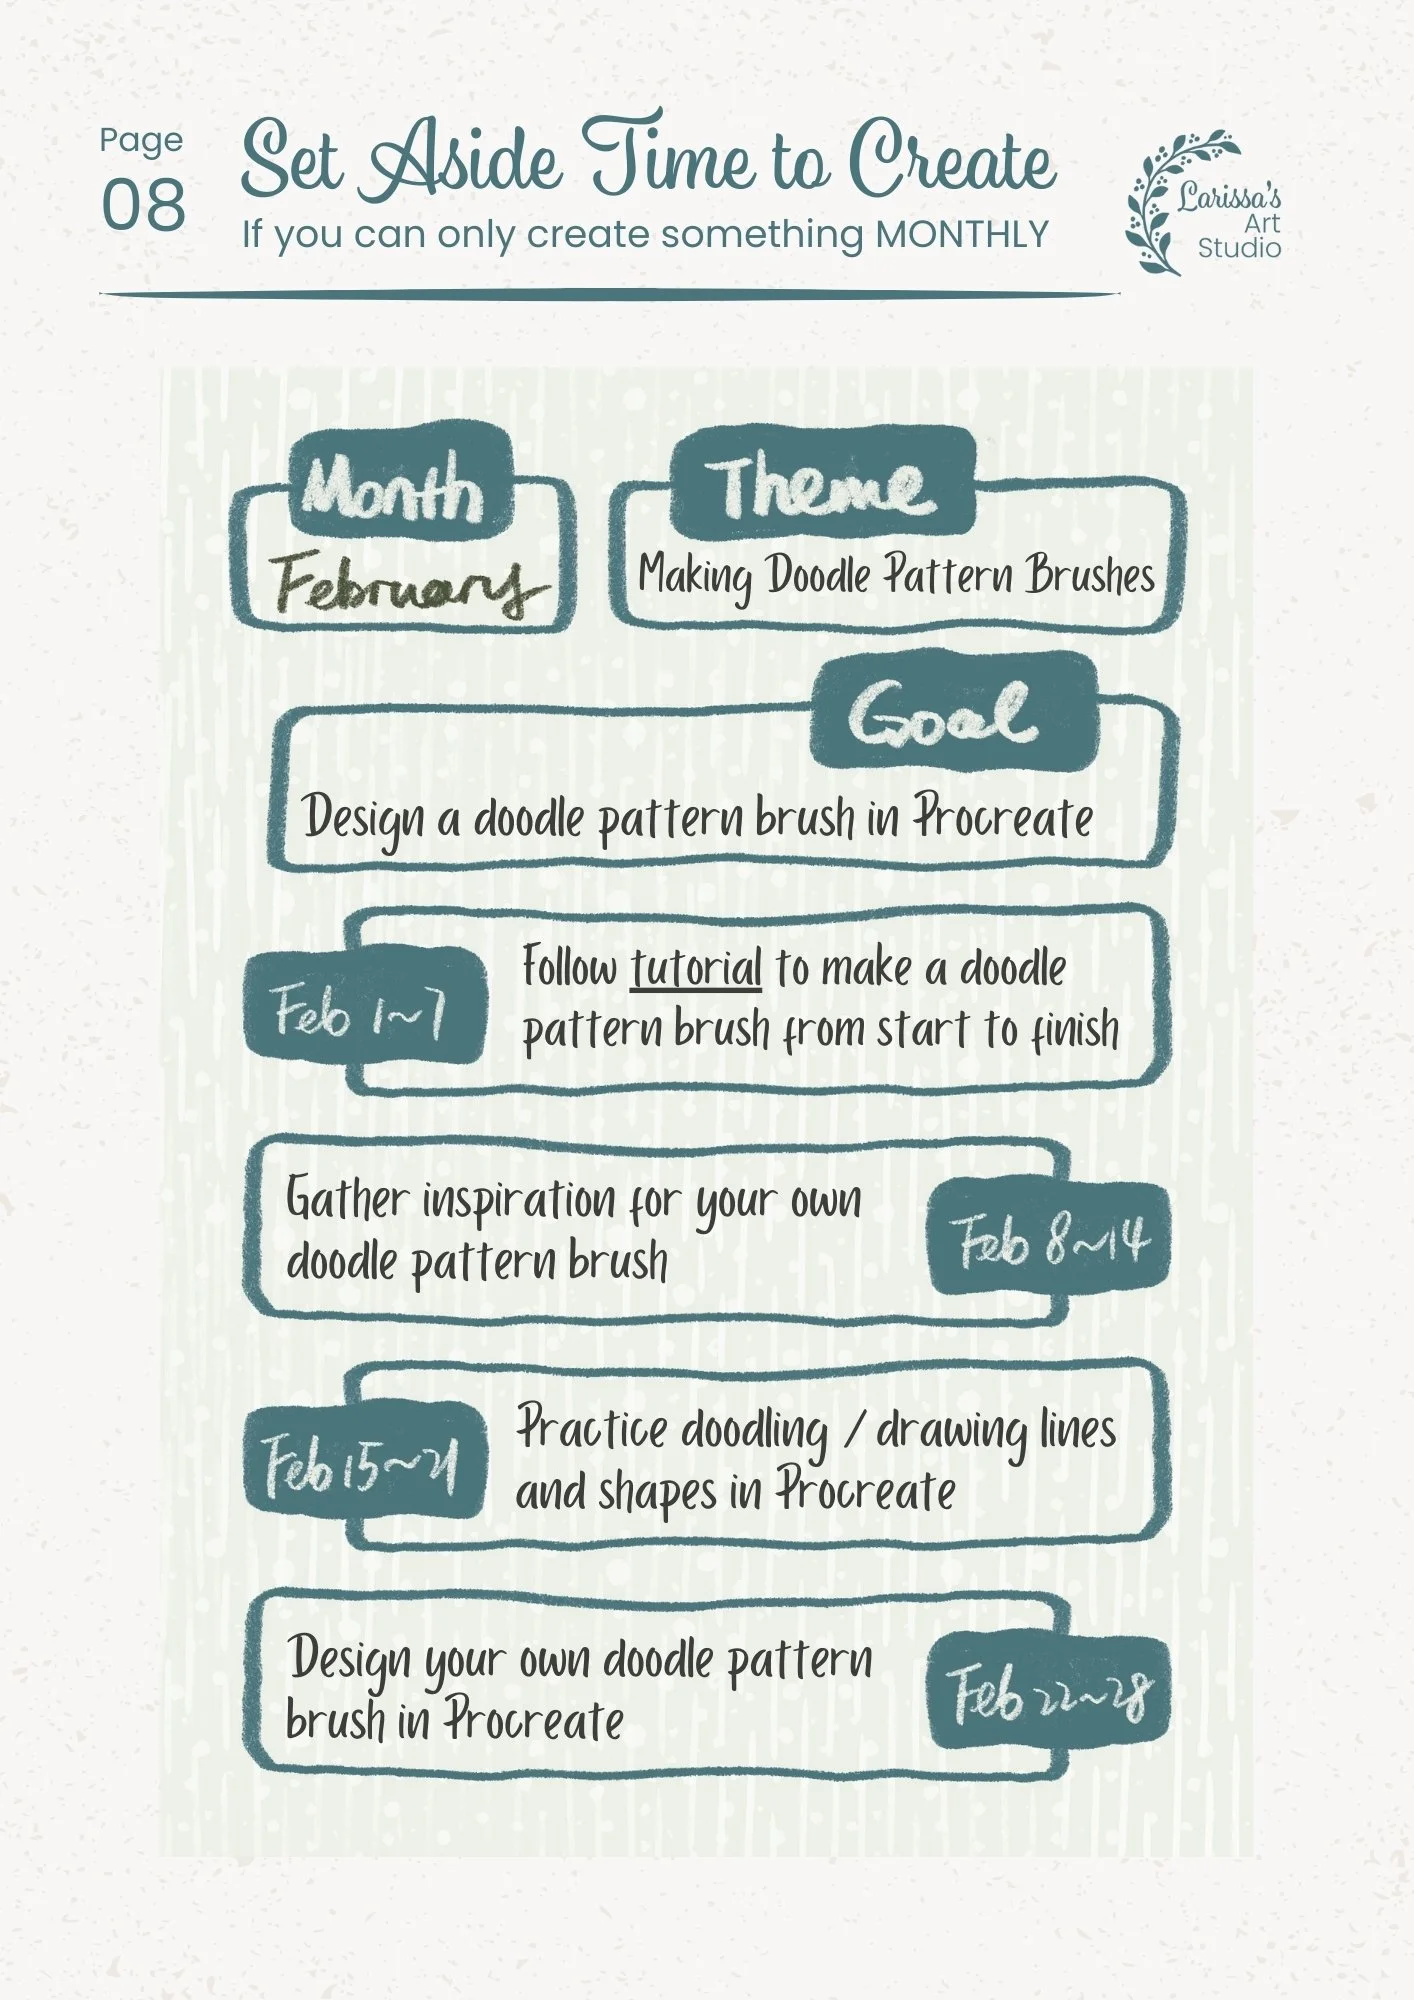 Page
08
Set Aside Time to Create
If you can only create something MONTHLY
Larissa's
Art
Studio
Month
February
Theme
Making Doodle Pattern Brushes
Goal
Design a doodle pattern brush in Procreate
Feb 1~7
Follow tutorial to make a doodle
pattern brush from start to finish
Gather inspiration for your own
doodle pattern brush
Feb 8~14
Feb 15~21
Practice doodling / drawing lines
and shapes in Procreate
Design your own doodle pattern
brush in Procreate
Feb 22~28